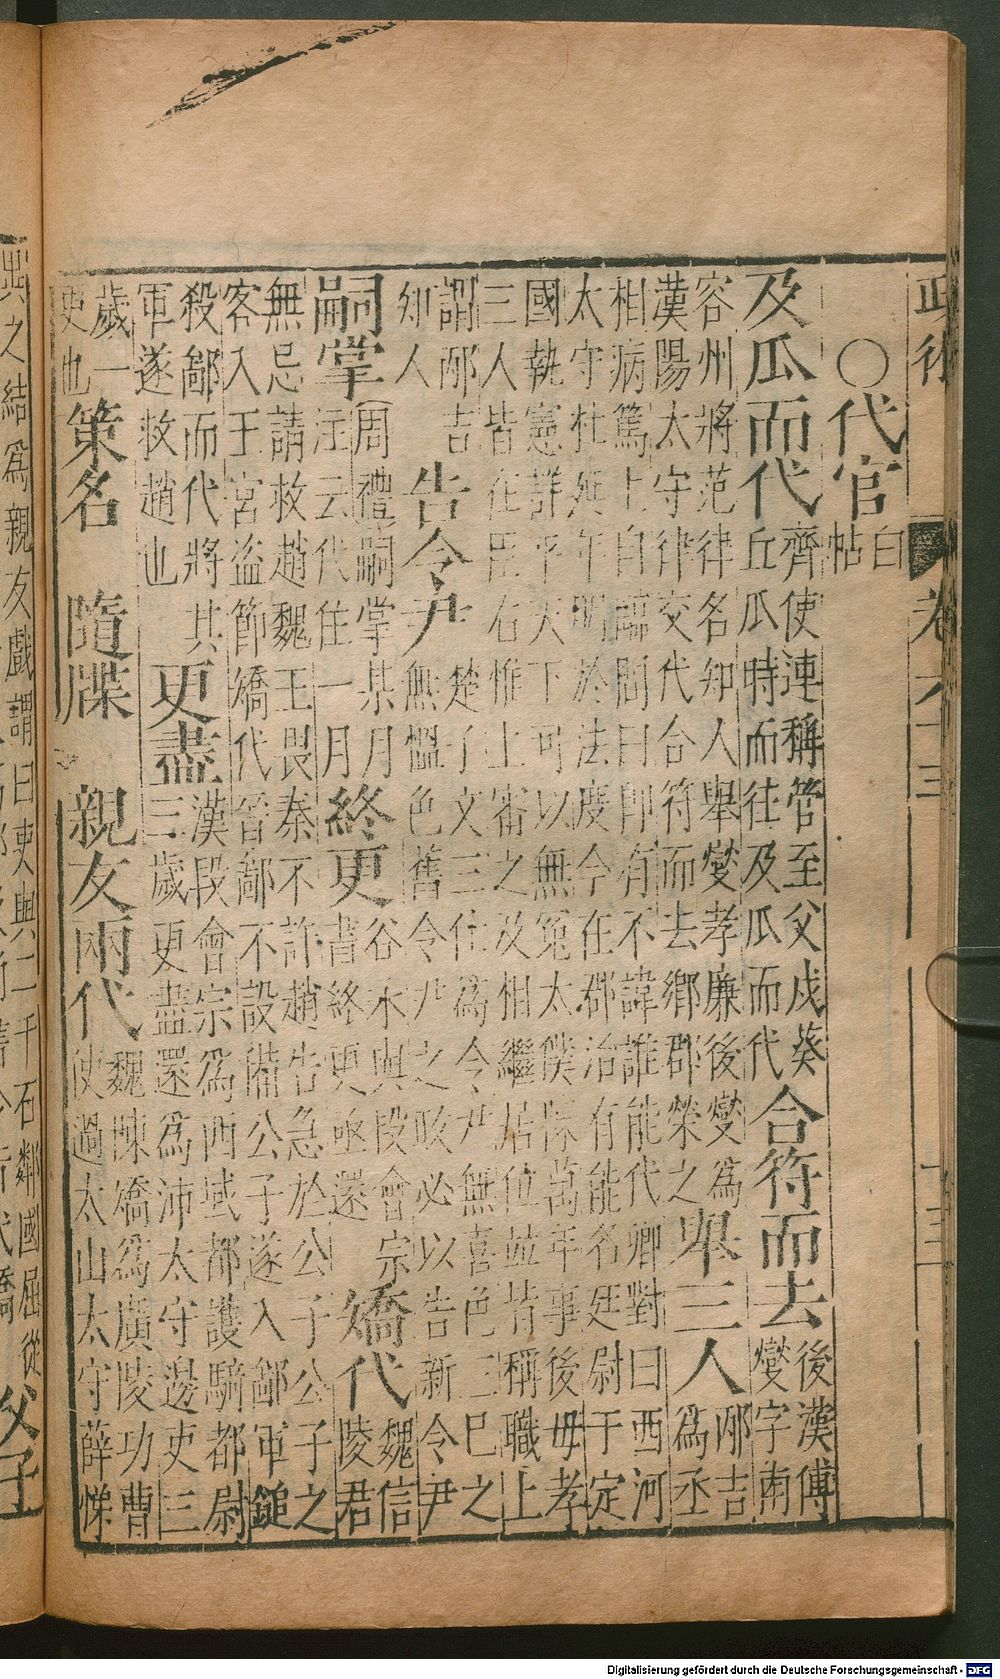 政術 卷八十三 十三
○代官 白帖
及瓜而代 齊使連稱管至父戍葵丘瓜時而往及瓜而代 合符而去 後漢傅燮字南
容州將范律名知人舉燮孝廉後燮為漢陽太守律交代合符而去鄉郡榮之 舉三人 邴吉為丞
相病篤上自臨問曰即有不諱誰能代卿對曰西河太守杜延年明於法度今在郡治有能名廷尉于定
國執憲群平天下可以無冤太僕陳萬年事後母孝三人皆在臣右惟上審之及相繼居位並皆稱職上
謂邴吉知人 告令尹 楚子文三仕為令尹無喜色三已之無慍色舊令尹之政必以告新令尹
嗣掌 周禮嗣掌某月注云代住一月 終更 谷永與段會宗書終更亟還 矯代 魏信陵君
無忌請救趙魏王畏秦不許趙告急於公子公子之客入王宮盜節矯代晉鄙不設備公子遂入鄙軍鎚
殺鄙而代將其軍遂救趙也 更盡 漢段會宗為西域都護騎都尉三歲更盡還為沛太守邊吏三
歲一更也 策名 隋牒 親友兩代 魏陳矯為廣陵功曹使過太山太守薛悌
異之結為親友戲謂曰吏與二千石鄰國屈從 父子
Digitalisierung gefördert durch die Deutsche Forschungsgemeinschaft - DFG